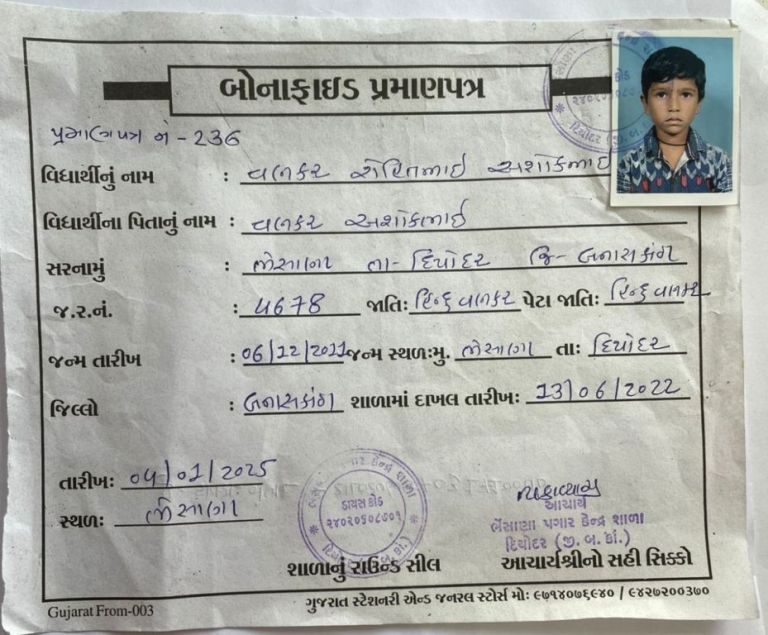 બોનાફાઇડ પ્રમાણપત્ર
પ્રમાણપત્ર નં - 236
વિધાર્થીનું નામ : વણકર રોહિતભાઇ અશોકભાઇ
વિધાર્થીના પિતાનું નામ : વણકર અશોકભાઇ
સરનામું : ભેસાણા તા- દિયોદર જિ- બનાસકાંઠા
જ.ર.નં. : 4678 જાતિ: હિન્દુ વણકર પેટા જાતિ: હિન્દુ વણકર
જન્મ તારીખ : 06/12/2011 જન્મ સ્થળ:મુ. ભેસાણા તા: દિયોદર
જિલ્લો : બનાસકાંઠા શાળામાં દાખલ તારીખ: 13/06/2022
તારીખ: 04/01/2025
સ્થળ: ભેસાણા
ડાયસ કોડ
આચાર્ય
ભેંસાણા પગાર કેન્દ્ર શાળા
દિયોદર (જી.બ.કાં.)
શાળાનું રાઉન્ડ સીલ
આચાર્યશ્રીનો સહી સિક્કો
Gujarat From-003
ગુજરાત સ્ટેશનરી એન્ડ જનરલ સ્ટોર્સ મોઃ ૯૭૧૪૦૭૬૯૪૦ / ૯૪૨૭૨૦૦૩૭૦